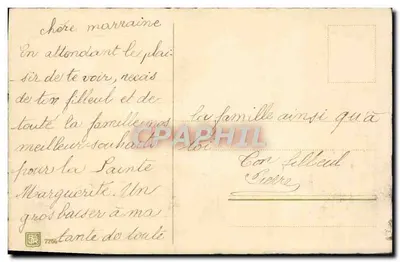 chère marraine
En attendant le plai-
sir de te voir, recois
de ton filleul et de
toute la famille nos
meilleur souhaits
pour la Sainte
Marguerite. Un
gros baiser à ma
tante de toute
la famille ainsi qu'à
toi
Ton filleul
Pierre
CPAPHIL